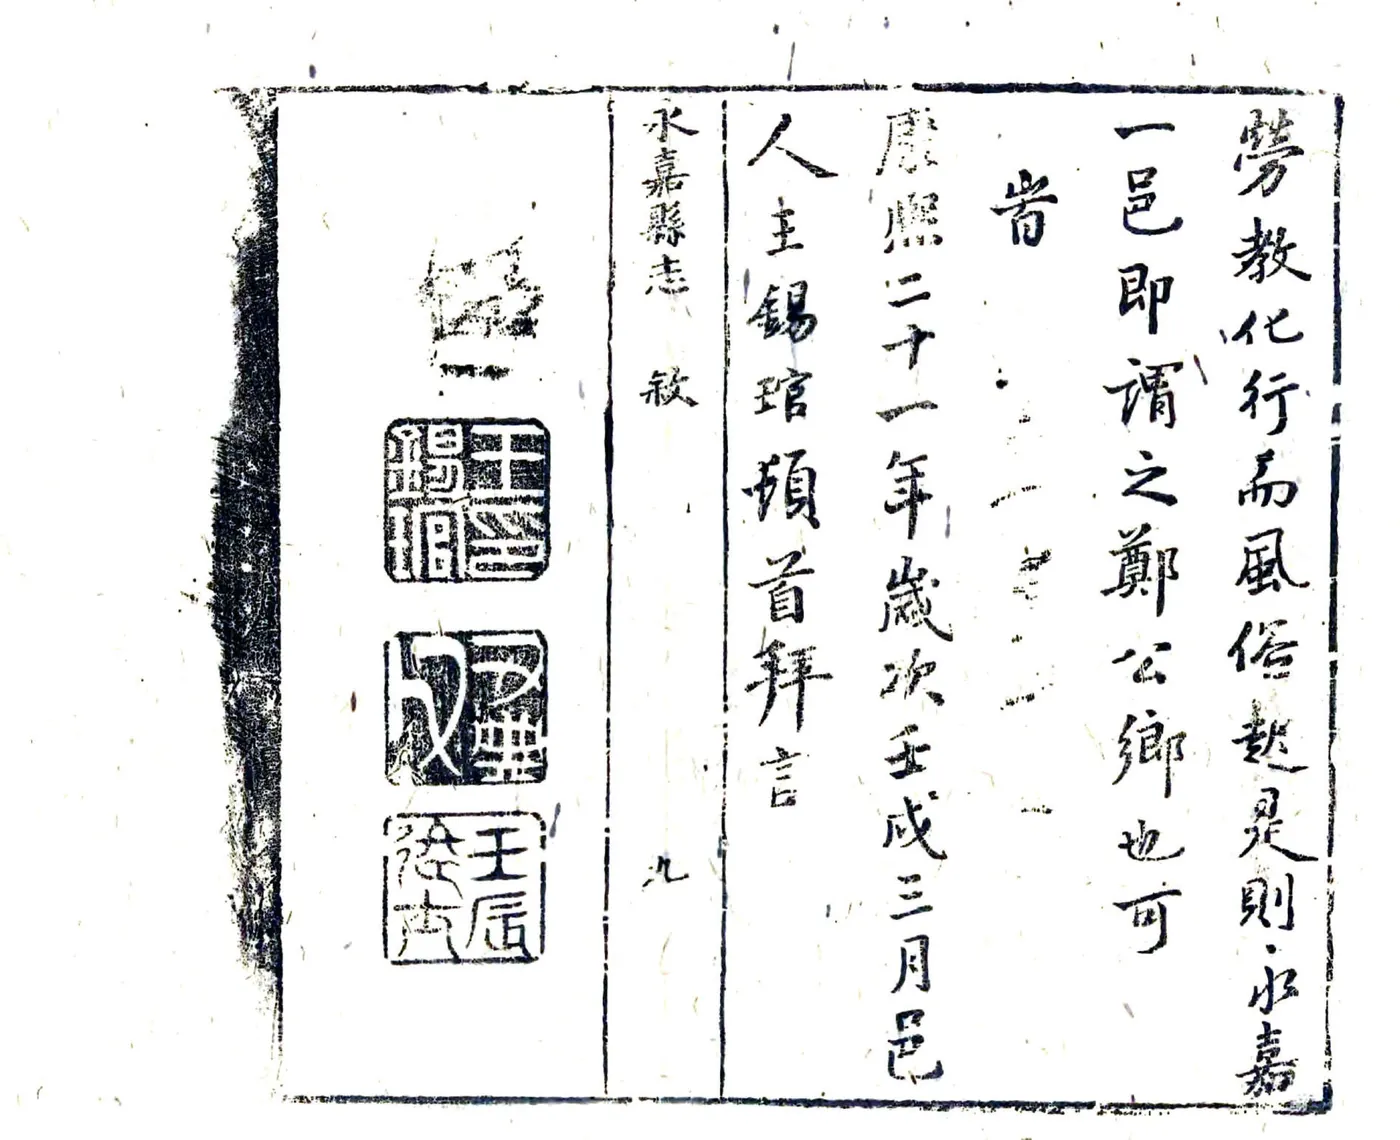 勞教化行而風俗起是則永嘉
一邑即謂之鄭公鄉也可
旹
康熙二十一年歲次壬戌三月邑
人王錫琯頓首拜言
永嘉縣志 敘 九
王印錫琯
又典
壬辰進士